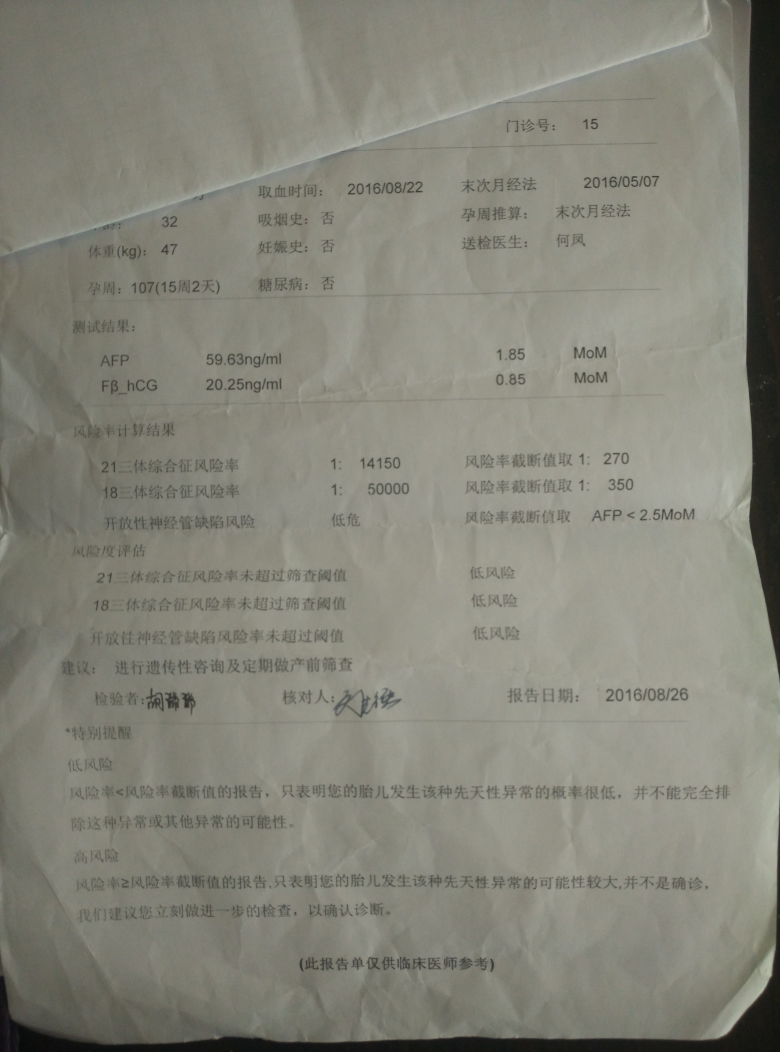 门诊号： 15
取血时间： 2016/08/22 末次月经法 2016/05/07
32 吸烟史：否 孕周推算： 末次月经法
体重(kg)： 47 妊娠史：否 送检医生： 何凤
孕周：107(15周2天) 糖尿病：否
测试结果：
AFP 59.63ng/ml 1.85 MoM
Fβ_hCG 20.25ng/ml 0.85 MoM
风险率计算结果
21三体综合征风险率 1： 14150 风险率截断值取 1： 270
18三体综合征风险率 1： 50000 风险率截断值取 1： 350
开放性神经管缺陷风险 低危 风险率截断值取 AFP < 2.5MoM
风险度评估
21三体综合征风险率未超过筛查阈值 低风险
18三体综合征风险率未超过筛查阈值 低风险
开放性神经管缺陷风险率未超过阈值 低风险
建议： 进行遗传性咨询及定期做产前筛查
检验者： 核对人： 报告日期： 2016/08/26
*特别提醒
低风险
风险率<风险率截断值的报告，只表明您的胎儿发生该种先天性异常的概率很低，并不能完全排
除这种异常或其他异常的可能性。
高风险
风险率≥风险率截断值的报告,只表明您的胎儿发生该种先天性异常的可能性较大,并不是确诊，
我们建议您立刻做进一步的检查，以确认诊断。
(此报告单仅供临床医师参考)